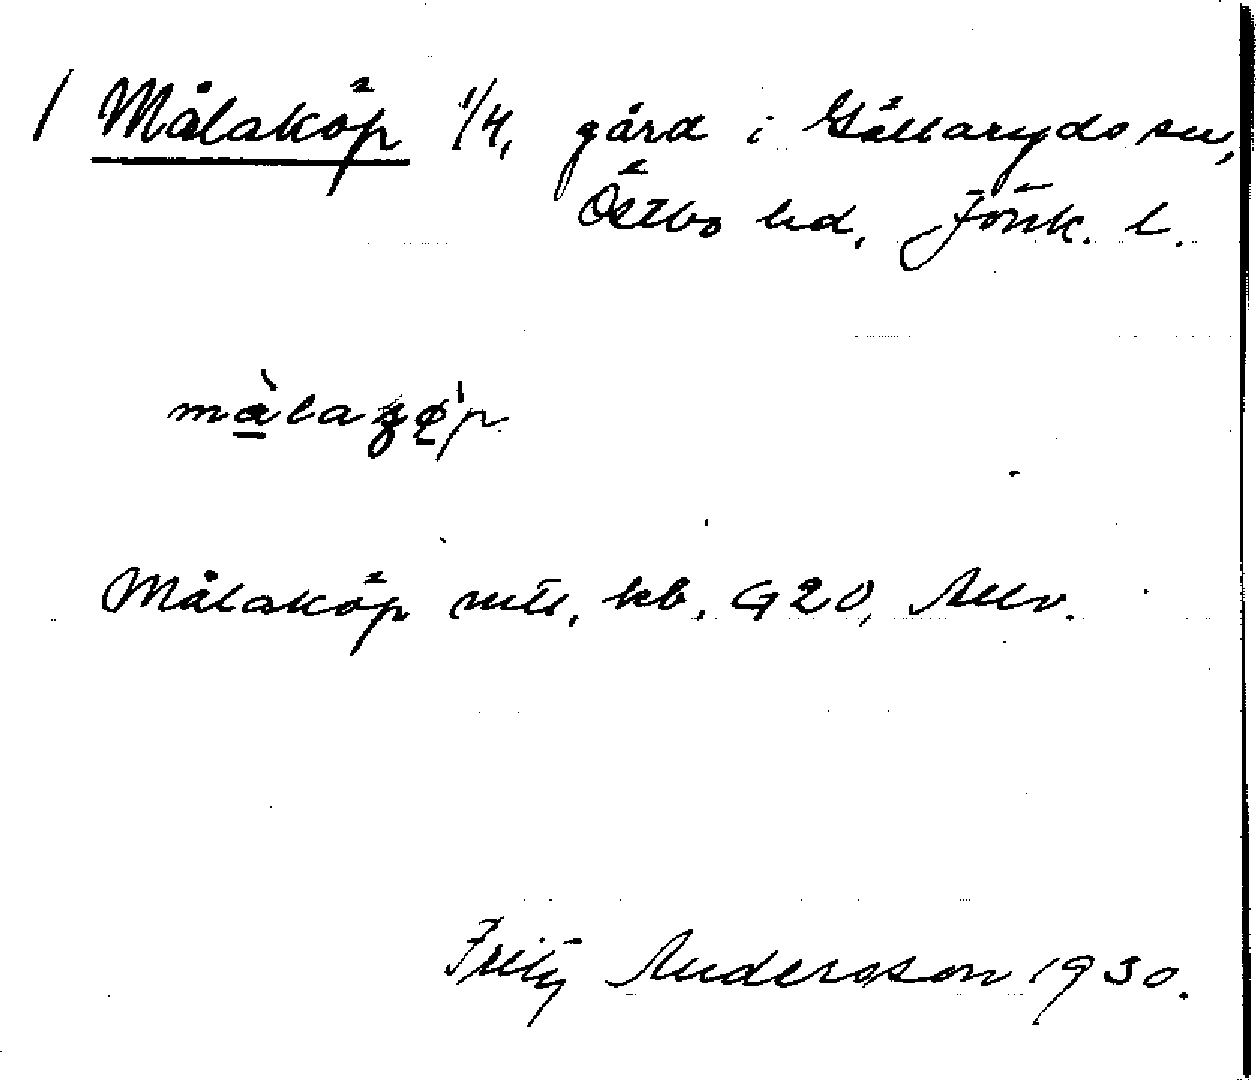 / Målaköp 1/4, gård i Gällaryds sn,
Östbo hd, Jönk. l.
Målaköp mtl, kb, G20, Allv.
Fritz Andersson 1930.